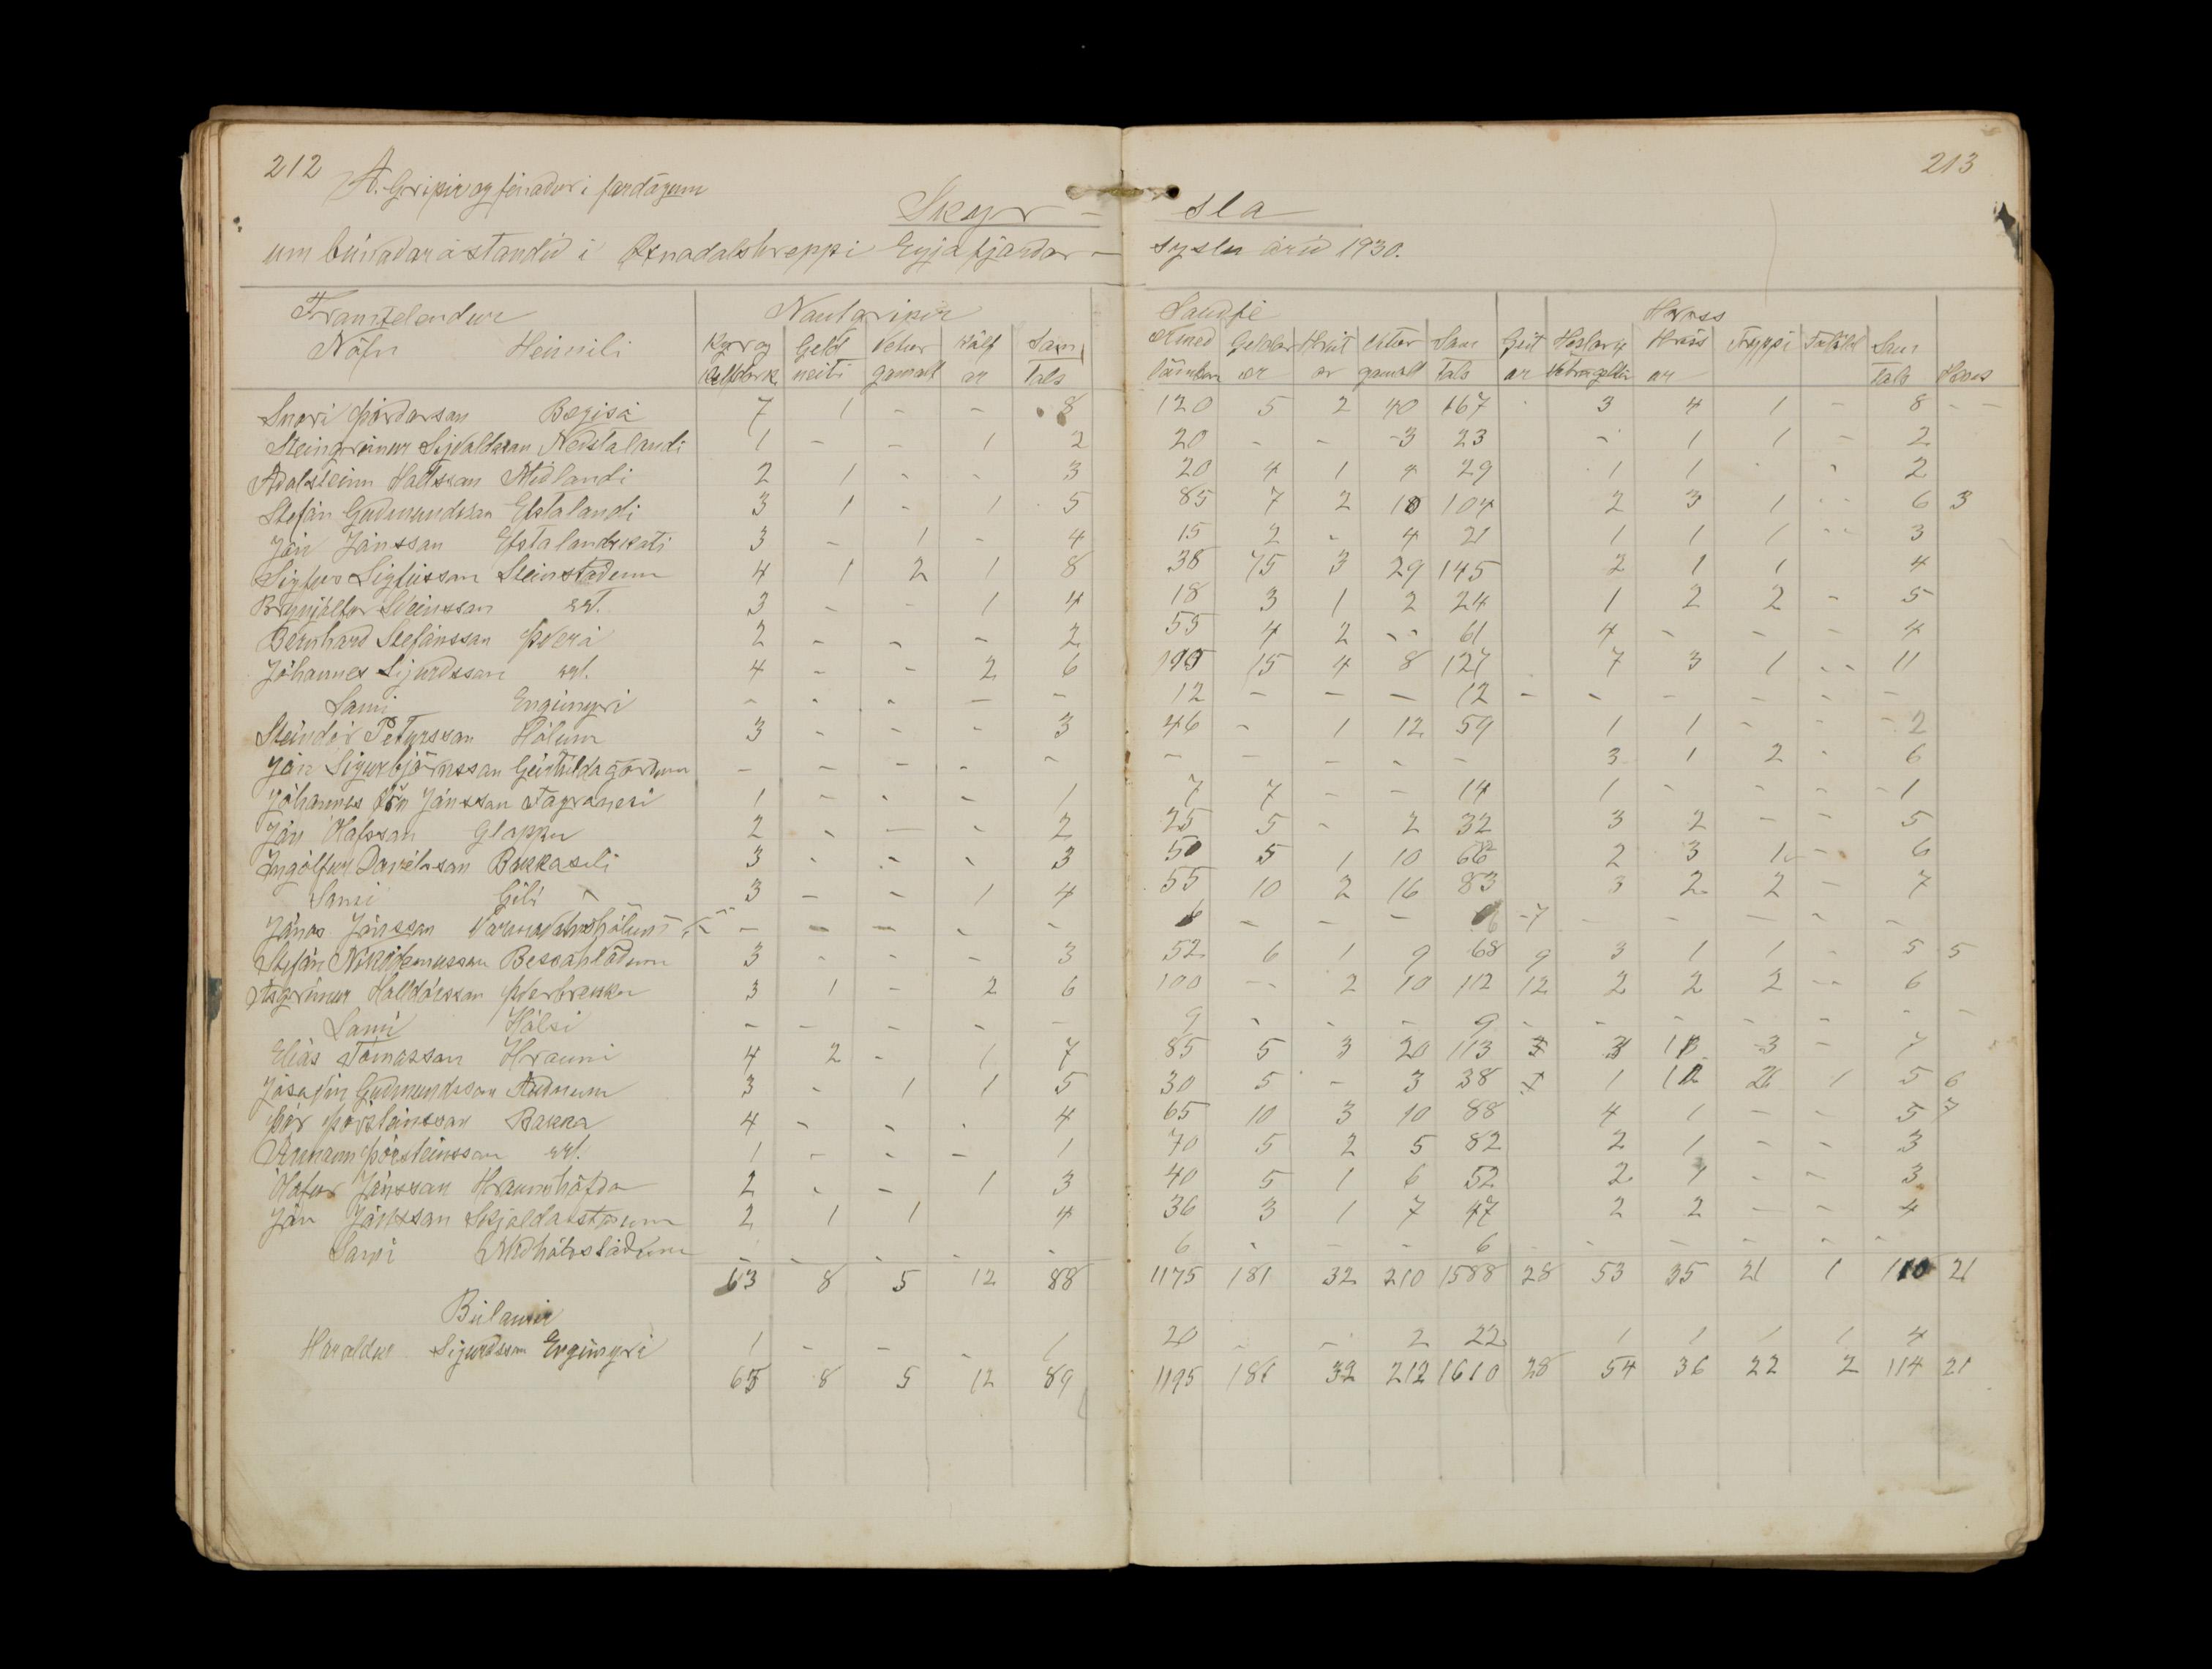 212
A. Gripir og fénadur i fardögum
213
Skyr - sla
um búnadar ástandid i Öxnadalshreppi Eyjafjardar - syslu árid 1930.
Framteljendur Nautgripir Saudfé Hross
Nöfn Heimili Kyr og kelfdark. Geld neiti Vetur gamalt Kálf ar Sam tals Ær med lömbum Geldar ær Hrút ar Vetur gamalt Sam tals Geit ar Hestar Hryss ar Tryppi Folöld Sam tals Hæns
Snori Þórdarson Bægisá 7 1 - - 8 120 5 2 40 167 3 4 1 - 8 - -
Steingrímur Sigvaldason Neistalandi 1 - - 1 2 20 - - -3 23 - 1 1 - 2
Adalsteinn Hallsson Midlandi 2 1 - - 3 20 4 1 4 29 1 1 - - 2
Stefán Gudmundsson Efstalandi 3 1 - 1 5 85 7 2 10 104 2 3 1 - - 6 3
Jón Jónsson Efstalandskoti 3 - 1 - 4 15 2 - 4 21 1 1 1 - - 3
Sigfús Sigfússon Steinstödum 4 1 2 1 8 38 75 3 29 145 2 1 1 4
Brynjólfur Sveinsson s.st. 3 - - 1 4 18 3 1 2 24 1 2 2 - 5
Bernhard Stefánsson Þverá 2 - - - 2 55 4 2 - - 61 4 - - - 4
Jóhannes Sigurdsson s.st. 4 - - 2 6 100 15 4 8 127 7 3 1 - - 11
Sami Engimyri - - - - - 12 - - - 12 - - - - - -
Steindór Pétursson Hólum 3 - - - 3 46 - 1 12 59 1 1 - - - 2
Jón Sigurbjörnsson Geirhildagördum - - - - - - - - - - 3 1 2 - 6
Jóhannes Örn Jónsson Fagranesi 1 - - - 1 7 7 - - 14 1 - - - - 1
Jón Ólafsson Gloppu 2 - - - 2 25 5 - 2 32 3 2 - - 5
Ingólfur Daníelsson Bakkaseli 3 - - - 3 50 5 1 10 66 2 3 1 - 6
Sami Gili 3 - - 1 4 55 10 2 16 83 3 2 2 - 7
Jónas Jónsson Varmavatnshólum - - - - - 6 - - - 6 -7 - - - - -
Stefán Nikódemusson Bessahlödum 3 - - - 3 52 6 1 9 68 9 3 1 1 - 5 5
Ásgrímur Halldórsson Þverbrekku 3 1 - 2 6 100 - - 2 10 112 12 2 2 2 - - 6
Sami Hálsi - - - - - 9 - - - 9 - - - - - - -
Elías Tómasson Hrauni 4 2 - 1 7 85 5 3 20 113 3 1 3 - 7
Jósafín Gudmundsson Audnum 3 - 1 1 5 30 5 - 3 38 1 1 2 1 5 6
Þór Þorsteinsson Bakka 4 - - - 4 65 10 3 10 88 4 1 - - 5 7
Ármann Þorsteinsson s.st. 1 - - - 1 70 5 2 5 82 2 1 - - 3
Ólafur Jónsson Hraunshöfda 2 - - 1 3 40 5 1 6 52 2 1 - - 3
Jón Jónsson Skjaldarstödum 2 1 1 4 36 3 1 7 47 2 2 - - 4
Sami Midhálsstödum - - - - - 6 - - - 6 - - - - - -
63 8 5 12 88 1175 181 32 210 1588 28 53 35 21 1 110 21
Búlausir
Haraldur Sigurdsson Engimyri 1 - - - 1 20 - - 2 22 1 1 1 1 4
65 8 5 12 89 1195 181 32 212 1610 28 54 36 22 2 114 21